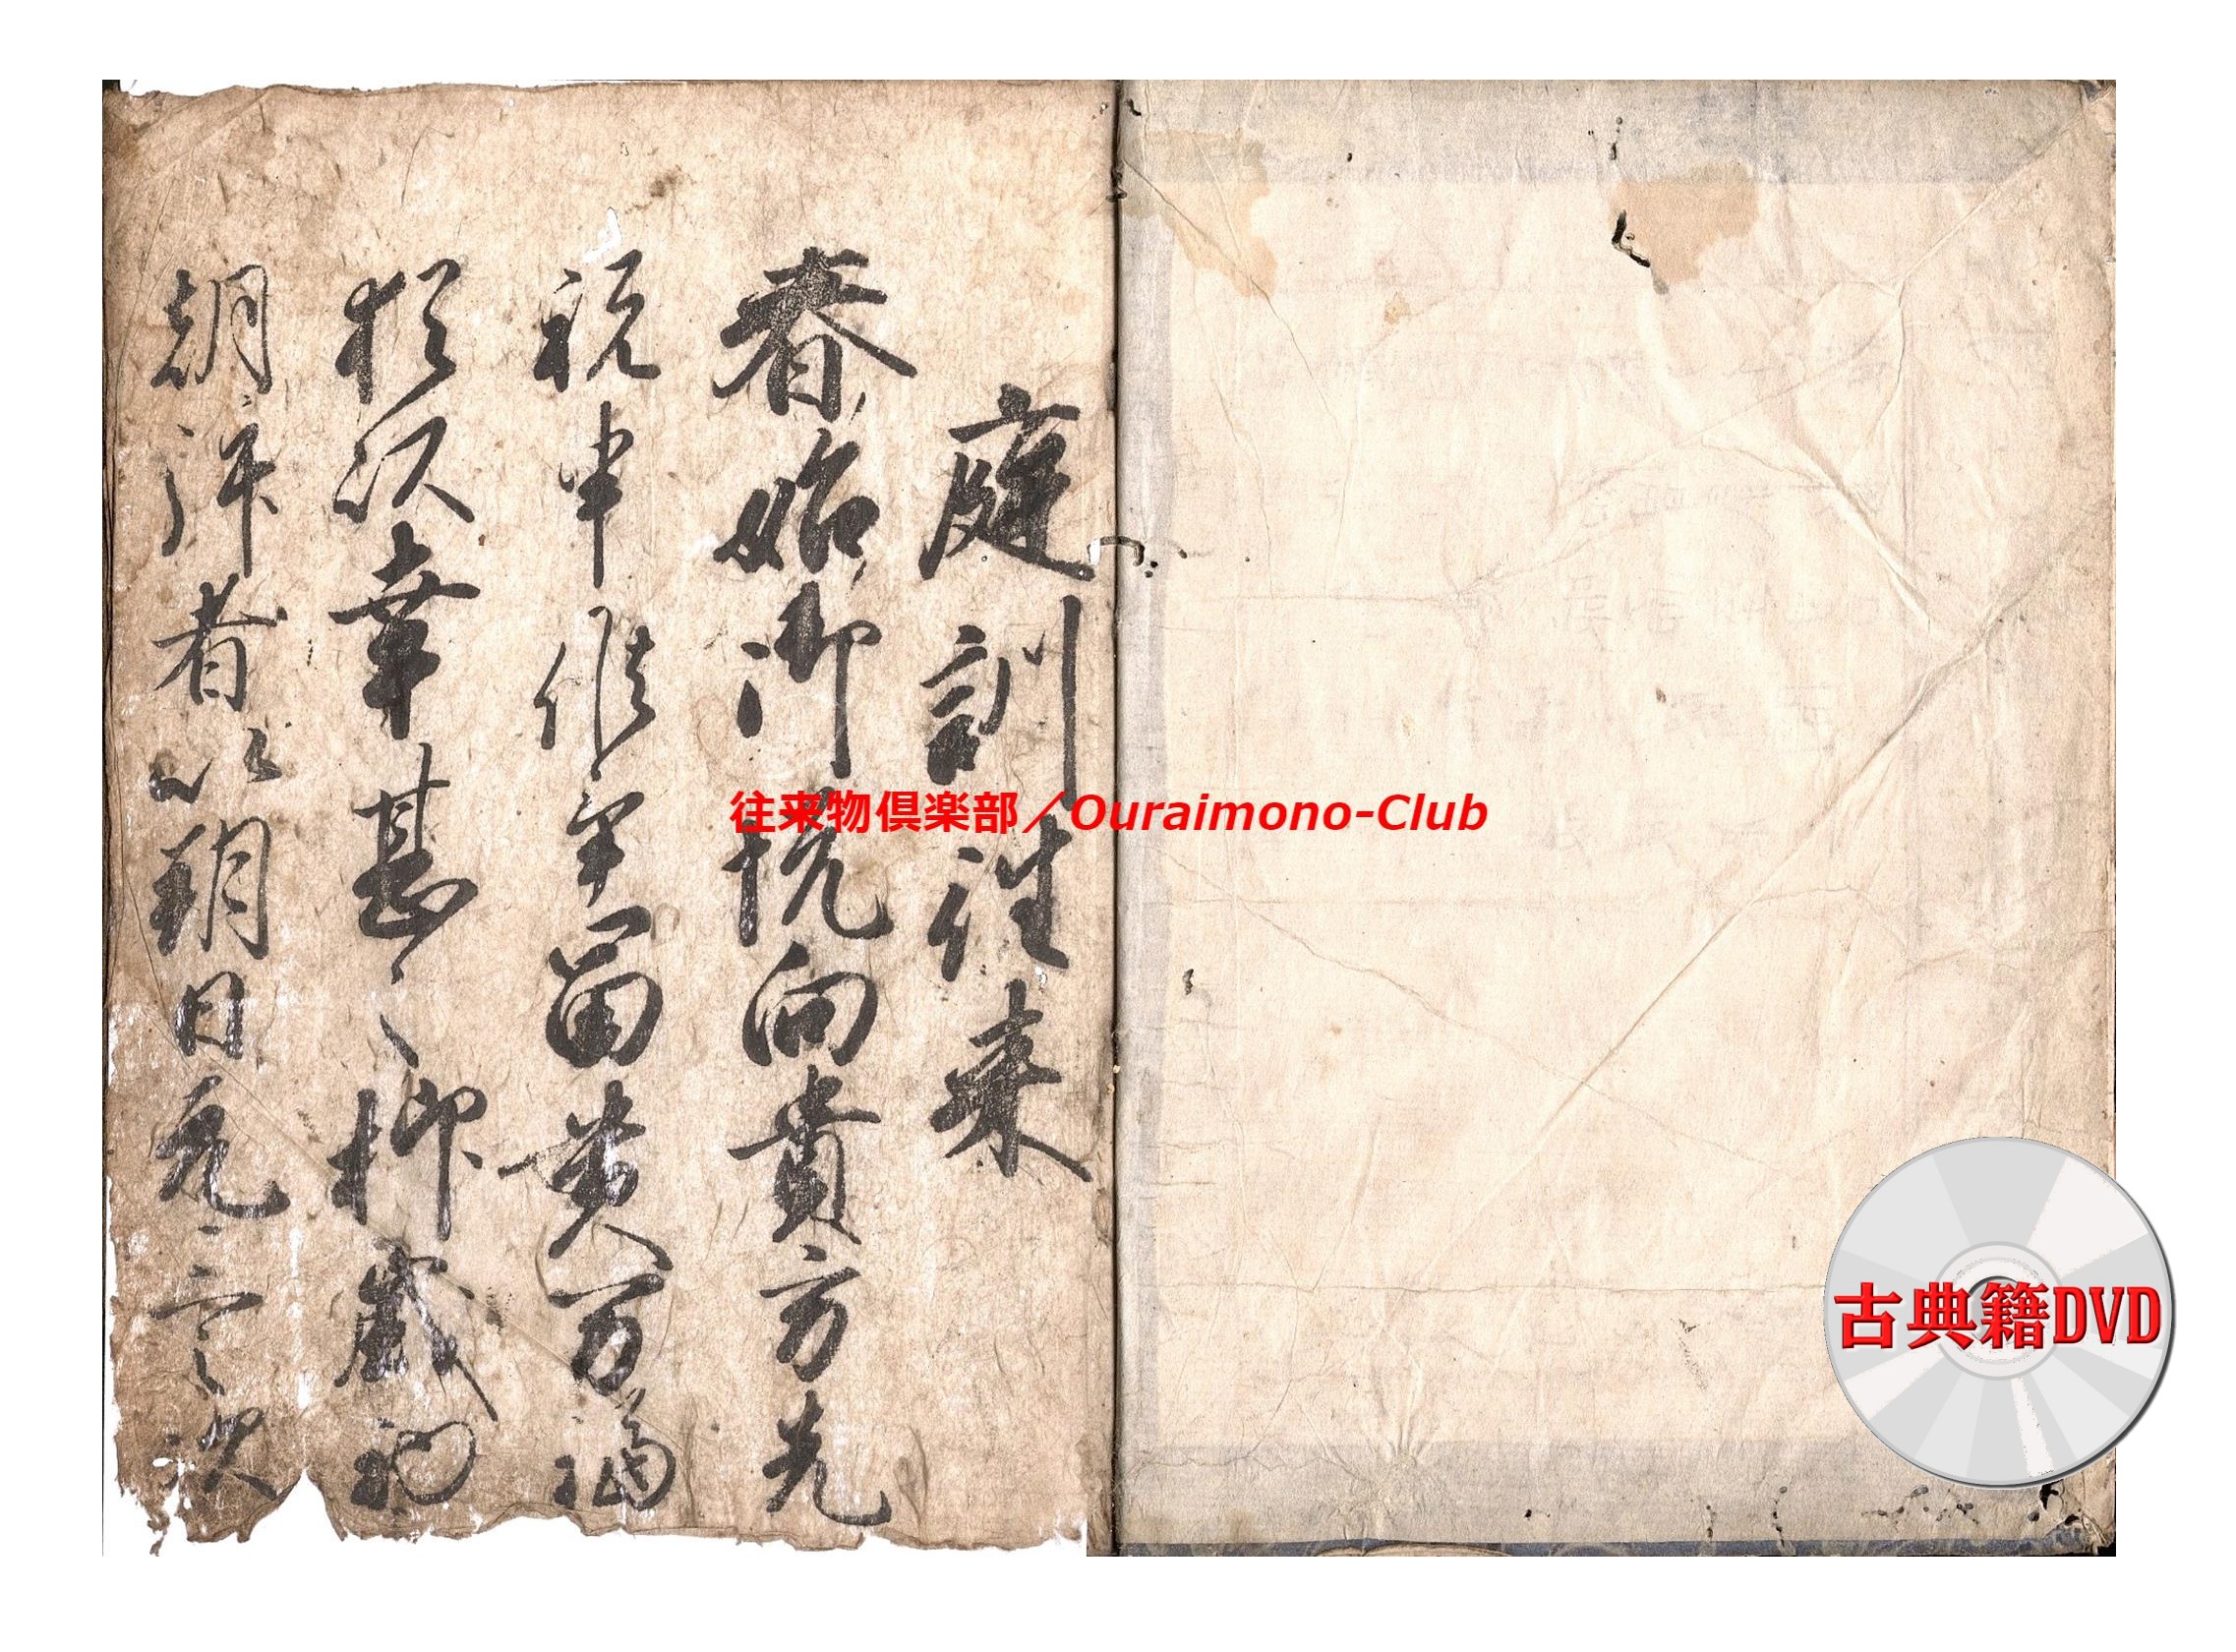 庭訓往来
春始御悦向貴方先
祝申候畢富貴万福
猶以幸甚々々抑歳初
朝拝者以朔日元三之次
往来物倶楽部／Ouraimono-Club
古典籍DVD